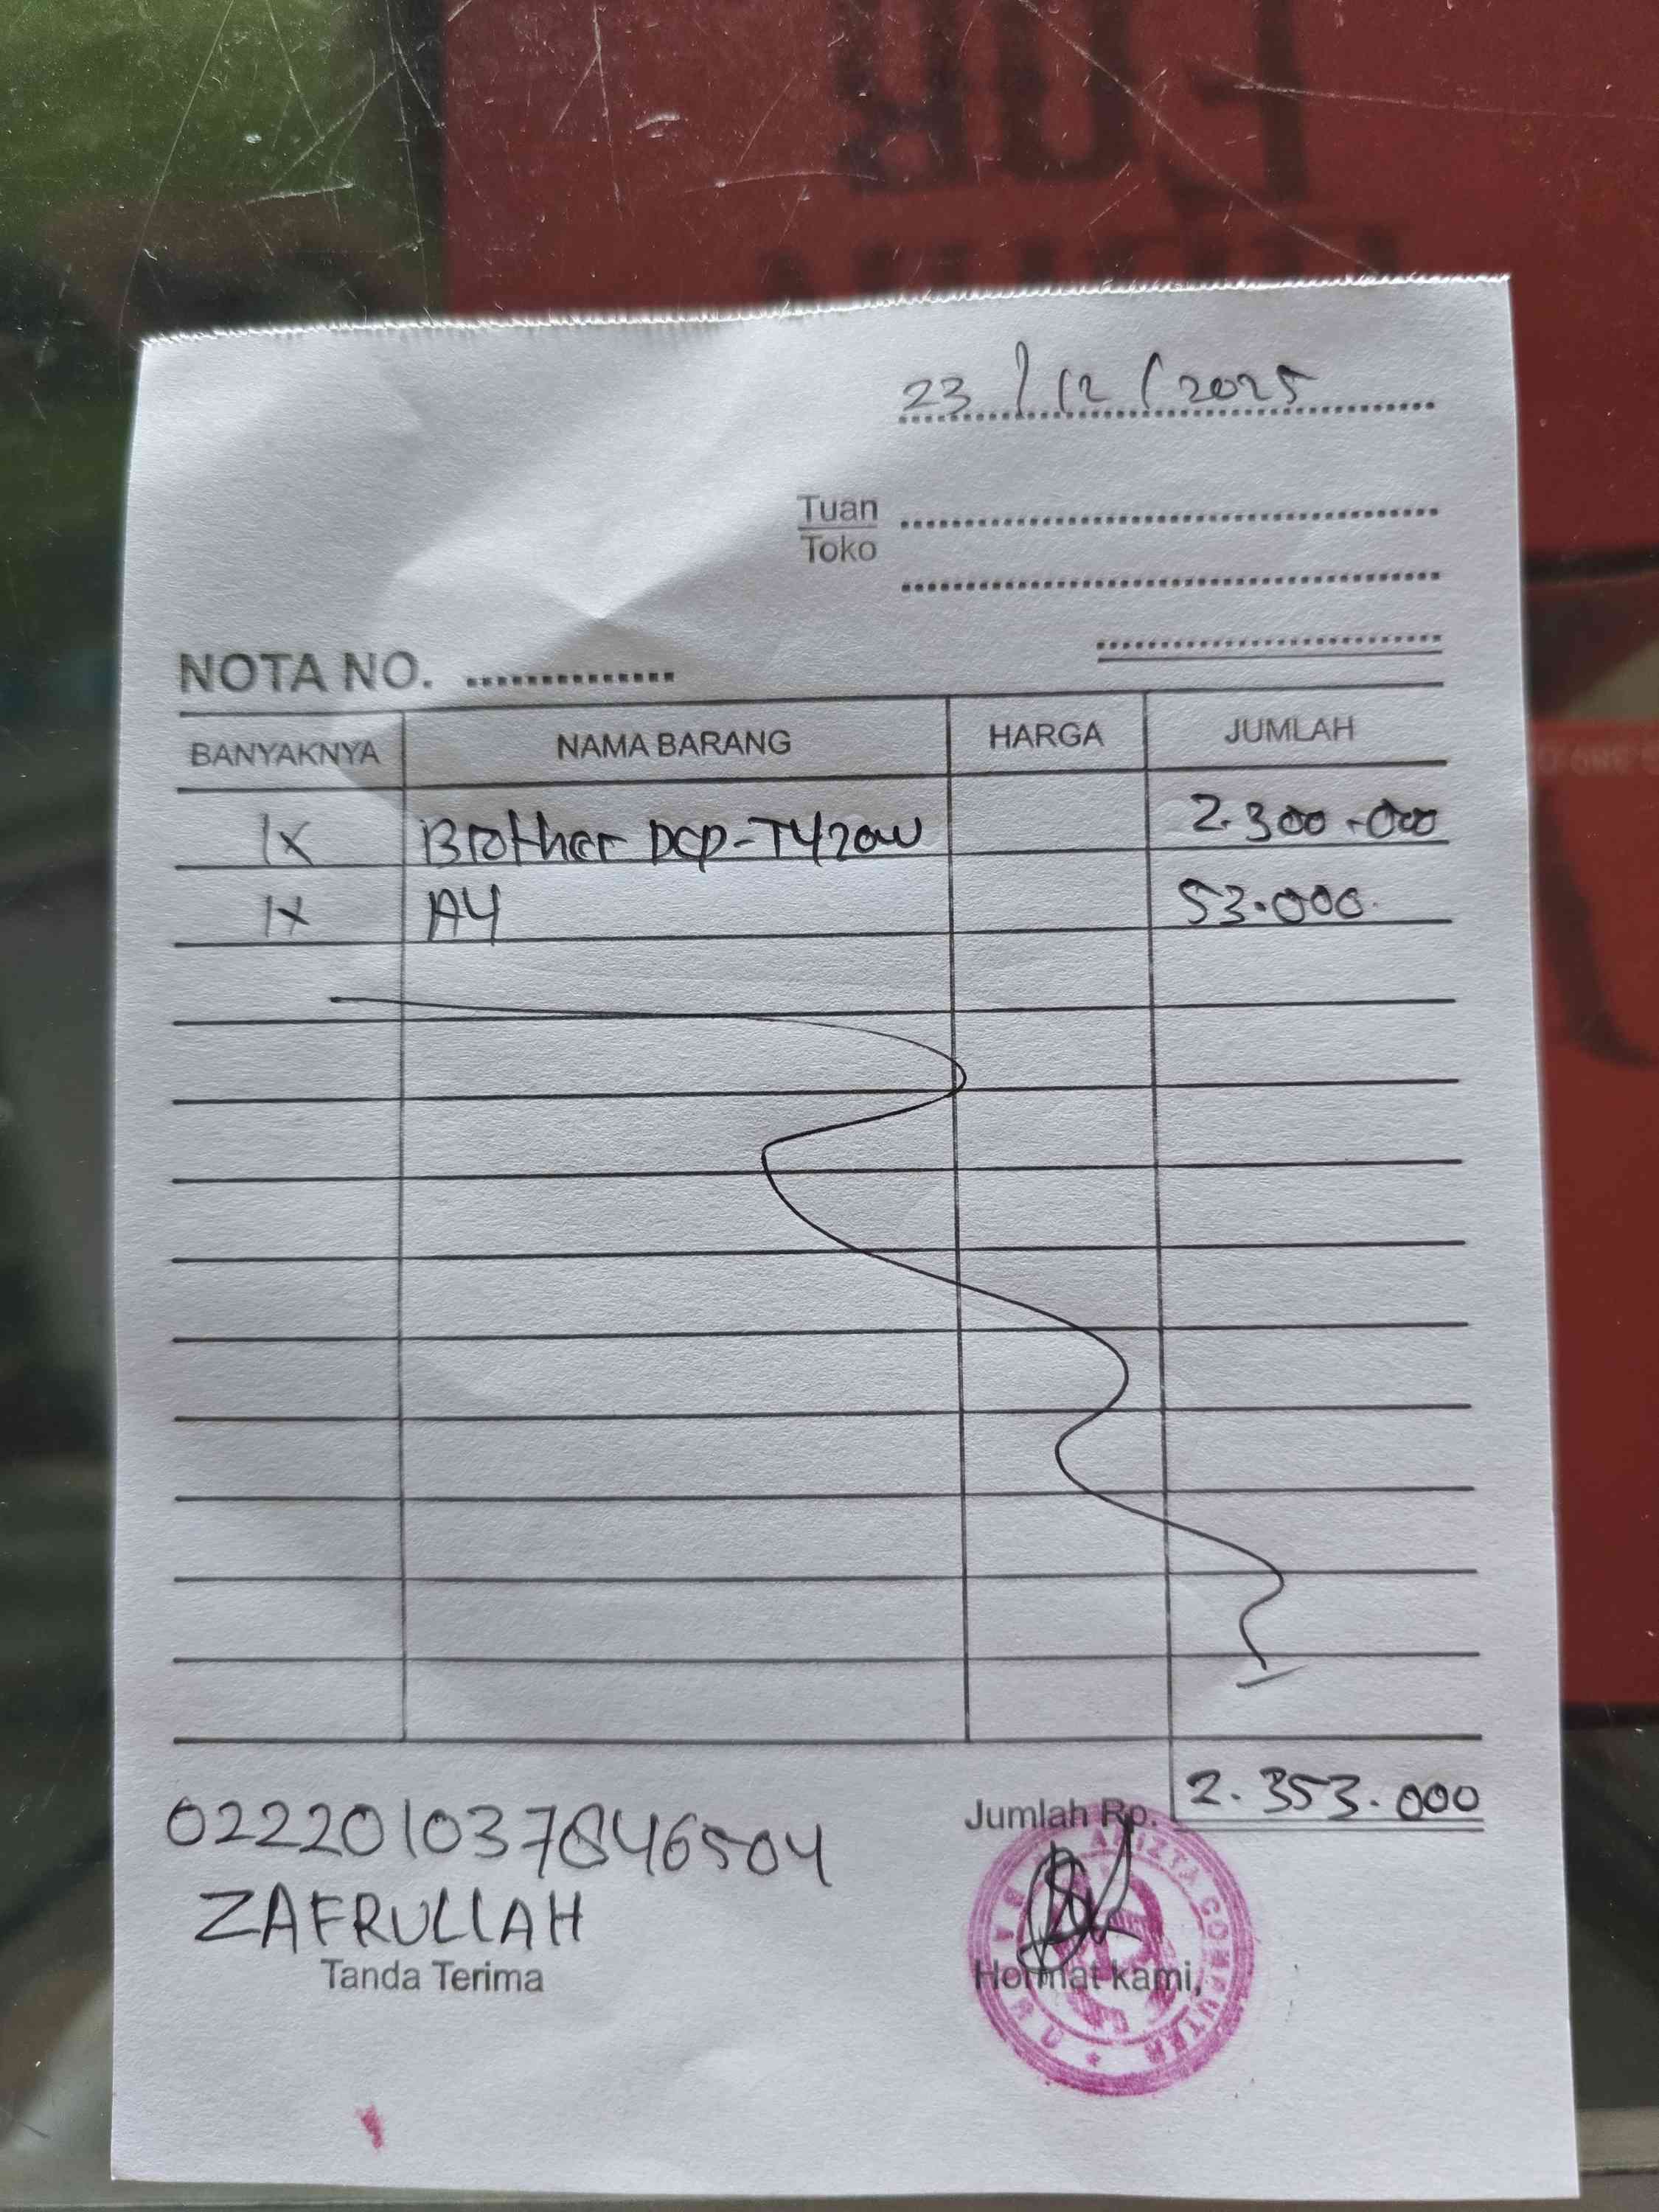 FOR
23/12/2025
Tuan
Toko
NOTA NO.
BANYAKNYA NAMA BARANG HARGA JUMLAH
1x Brother DCP-T420W 2.300.000
1x A4 53.000
Jumlah Rp. 2.353.000
022201037846504
ZAFRULLAH
Tanda Terima
Hormat kami,
COMPUTER